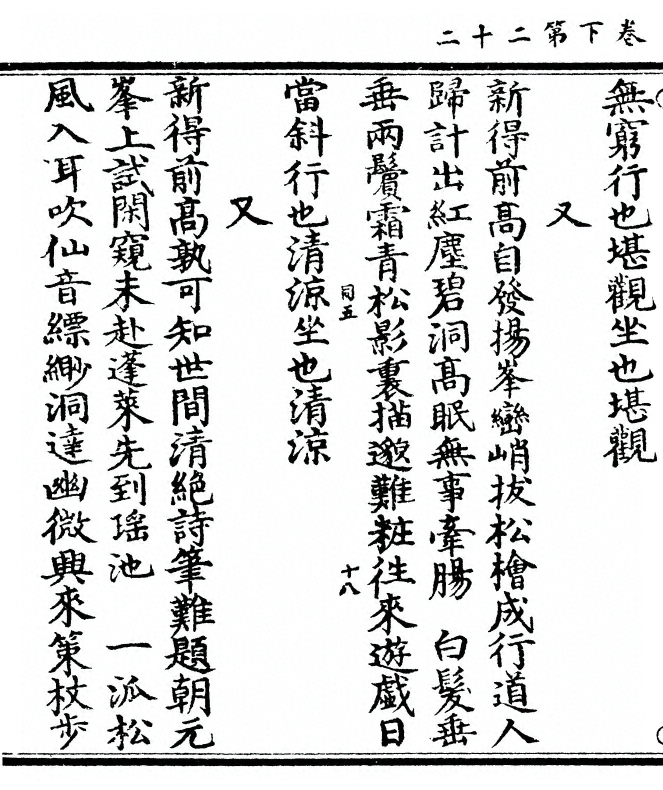 卷下第二十二
無窮行也堪觀坐也堪觀
又
新得前高自發揚峯巒峭拔松檜成行道人
歸計出紅塵碧洞高眠無事牽腸　白髮垂
垂兩鬢霜青松影裏描邈難粧徃來遊戲日
同五
十八
當斜行也清涼坐也清涼
又
新得前高孰可知世間清絶詩筆難題朝元
峯上試閑窺未赴蓬萊先到瑶池　一派松
風入耳吹仙音縹緲洞達幽微興來策杖步